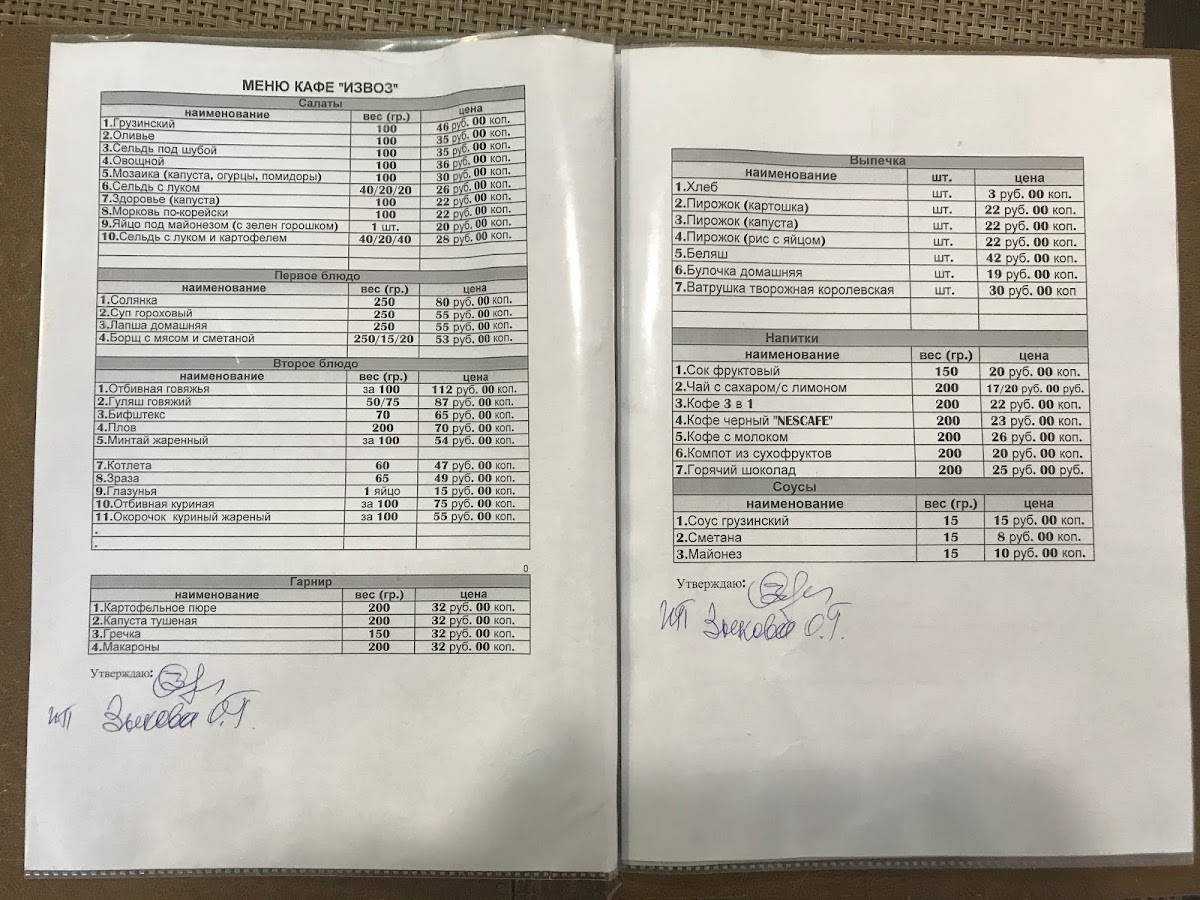 МЕНЮ КАФЕ "ИЗВОЗ"
Салаты
наименование вес (гр.) цена
1.Грузинский 100 46 руб. 00 коп.
2.Оливье 100 35 руб. 00 коп.
3.Сельдь под шубой 100 35 руб. 00 коп.
4.Овощной 100 36 руб. 00 коп.
5.Мозаика (капуста, огурцы, помидоры) 100 30 руб. 00 коп.
6.Сельдь с луком 40/20/20 26 руб. 00 коп.
7.Здоровье (капуста) 100 22 руб. 00 коп.
8.Морковь по-корейски 100 22 руб. 00 коп.
9.Яйцо под майонезом (с зелен горошком) 1 шт. 20 руб. 00 коп.
10.Сельдь с луком и картофелем 40/20/40 28 руб. 00 коп.
Первое блюдо
наименование вес (гр.) цена
1.Солянка 250 80 руб. 00 коп.
2.Суп гороховый 250 55 руб. 00 коп.
3.Лапша домашняя 250 55 руб. 00 коп.
4.Борщ с мясом и сметаной 250/15/20 53 руб. 00 коп.
Второе блюдо
наименование вес (гр.) цена
1.Отбивная говяжья за 100 112 руб. 00 коп.
2.Гуляш говяжий 50/75 87 руб. 00 коп.
3.Бифштекс 70 65 руб. 00 коп.
4.Плов 200 70 руб. 00 коп.
5.Минтай жаренный за 100 54 руб. 00 коп.
7.Котлета 60 47 руб. 00 коп.
8.Зраза 65 49 руб. 00 коп.
9.Глазунья 1 яйцо 15 руб. 00 коп.
10.Отбивная куриная за 100 75 руб. 00 коп.
11.Окорочок куриный жареный за 100 55 руб. 00 коп.
.
.
0
Гарнир
наименование вес (гр.) цена
1.Картофельное пюре 200 32 руб. 00 коп.
2.Капуста тушеная 200 32 руб. 00 коп.
3.Гречка 150 32 руб. 00 коп.
4.Макароны 200 32 руб. 00 коп.
Утверждаю:
ИП Зыкова О.Г.
Выпечка
наименование шт. цена
1.Хлеб шт. 3 руб. 00 коп.
2.Пирожок (картошка) шт. 22 руб. 00 коп.
3.Пирожок (капуста) шт. 22 руб. 00 коп.
4.Пирожок (рис с яйцом) шт. 22 руб. 00 коп.
5.Беляш шт. 42 руб. 00 коп.
6.Булочка домашняя шт. 19 руб. 00 коп.
7.Ватрушка творожная королевская шт. 30 руб. 00 коп
Напитки
наименование вес (гр.) цена
1.Сок фруктовый 150 20 руб. 00 коп.
2.Чай с сахаром/с лимоном 200 17/20 руб. 00 руб.
3.Кофе 3 в 1 200 22 руб. 00 коп.
4.Кофе черный "NESCAFE" 200 23 руб. 00 коп.
5.Кофе с молоком 200 26 руб. 00 коп.
6.Компот из сухофруктов 200 20 руб. 00 коп.
7.Горячий шоколад 200 25 руб. 00 руб.
Соусы
наименование вес (гр.) цена
1.Соус грузинский 15 15 руб. 00 коп.
2.Сметана 15 8 руб. 00 коп.
3.Майонез 15 10 руб. 00 коп.
Утверждаю:
ИП Зыкова О.Г.